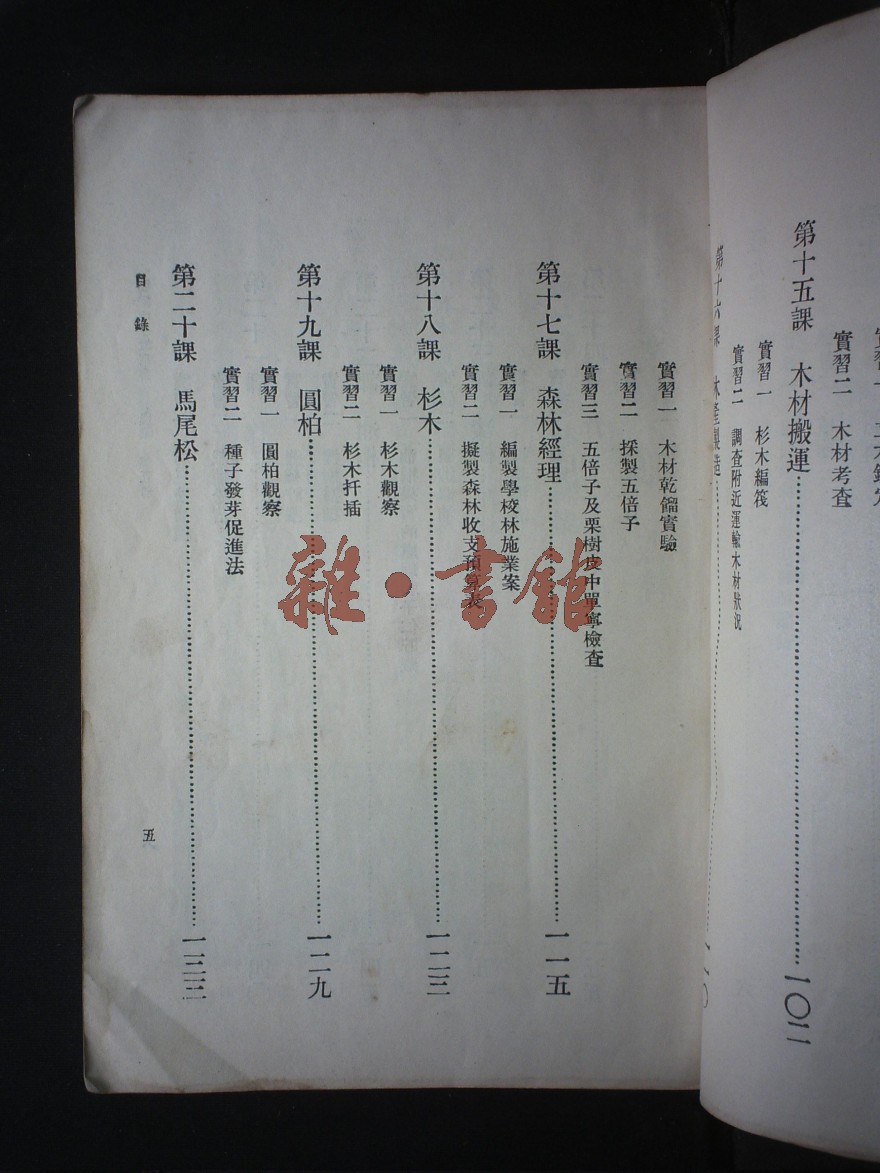 實習二　木材考査
第十五課　木材搬運……一〇二
實習一　杉木編筏
實習二　調査附近運輸木材狀況
第十六課　林產製造……一一〇
實習一　木材乾餾實驗
實習二　採製五倍子
實習三　五倍子及栗樹皮中單寧檢査
第十七課　森林經理……一一五
實習一　編製學校林施業案
實習二　擬製森林收支預算表
第十八課　杉木……一二三
實習一　杉木觀察
實習二　杉木扦插
第十九課　圓柏……一二九
實習一　圓柏觀察
實習二　種子發芽促進法
第二十課　馬尾松……一三三
目錄
五
雜·書館